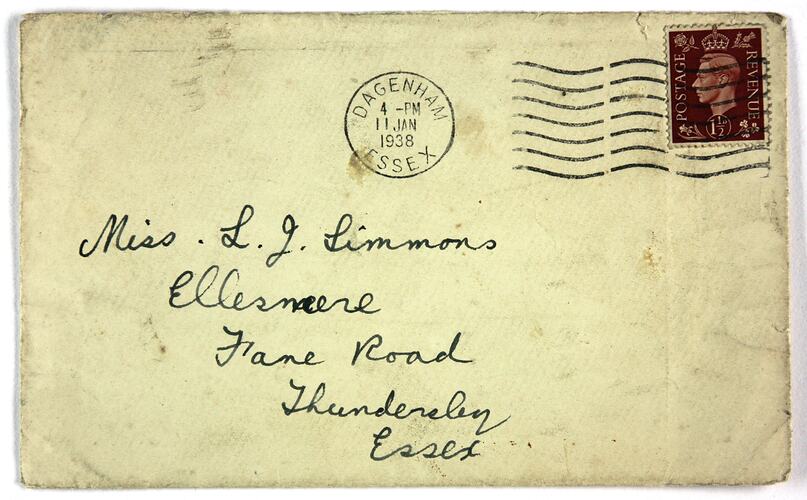 DAGENHAM
4 -PM
11 JAN
1938
ESSEX
POSTAGE
REVENUE
1½D
Miss. L. J. Simmons
Ellesmere
Fane Road
Thundersley
Essex